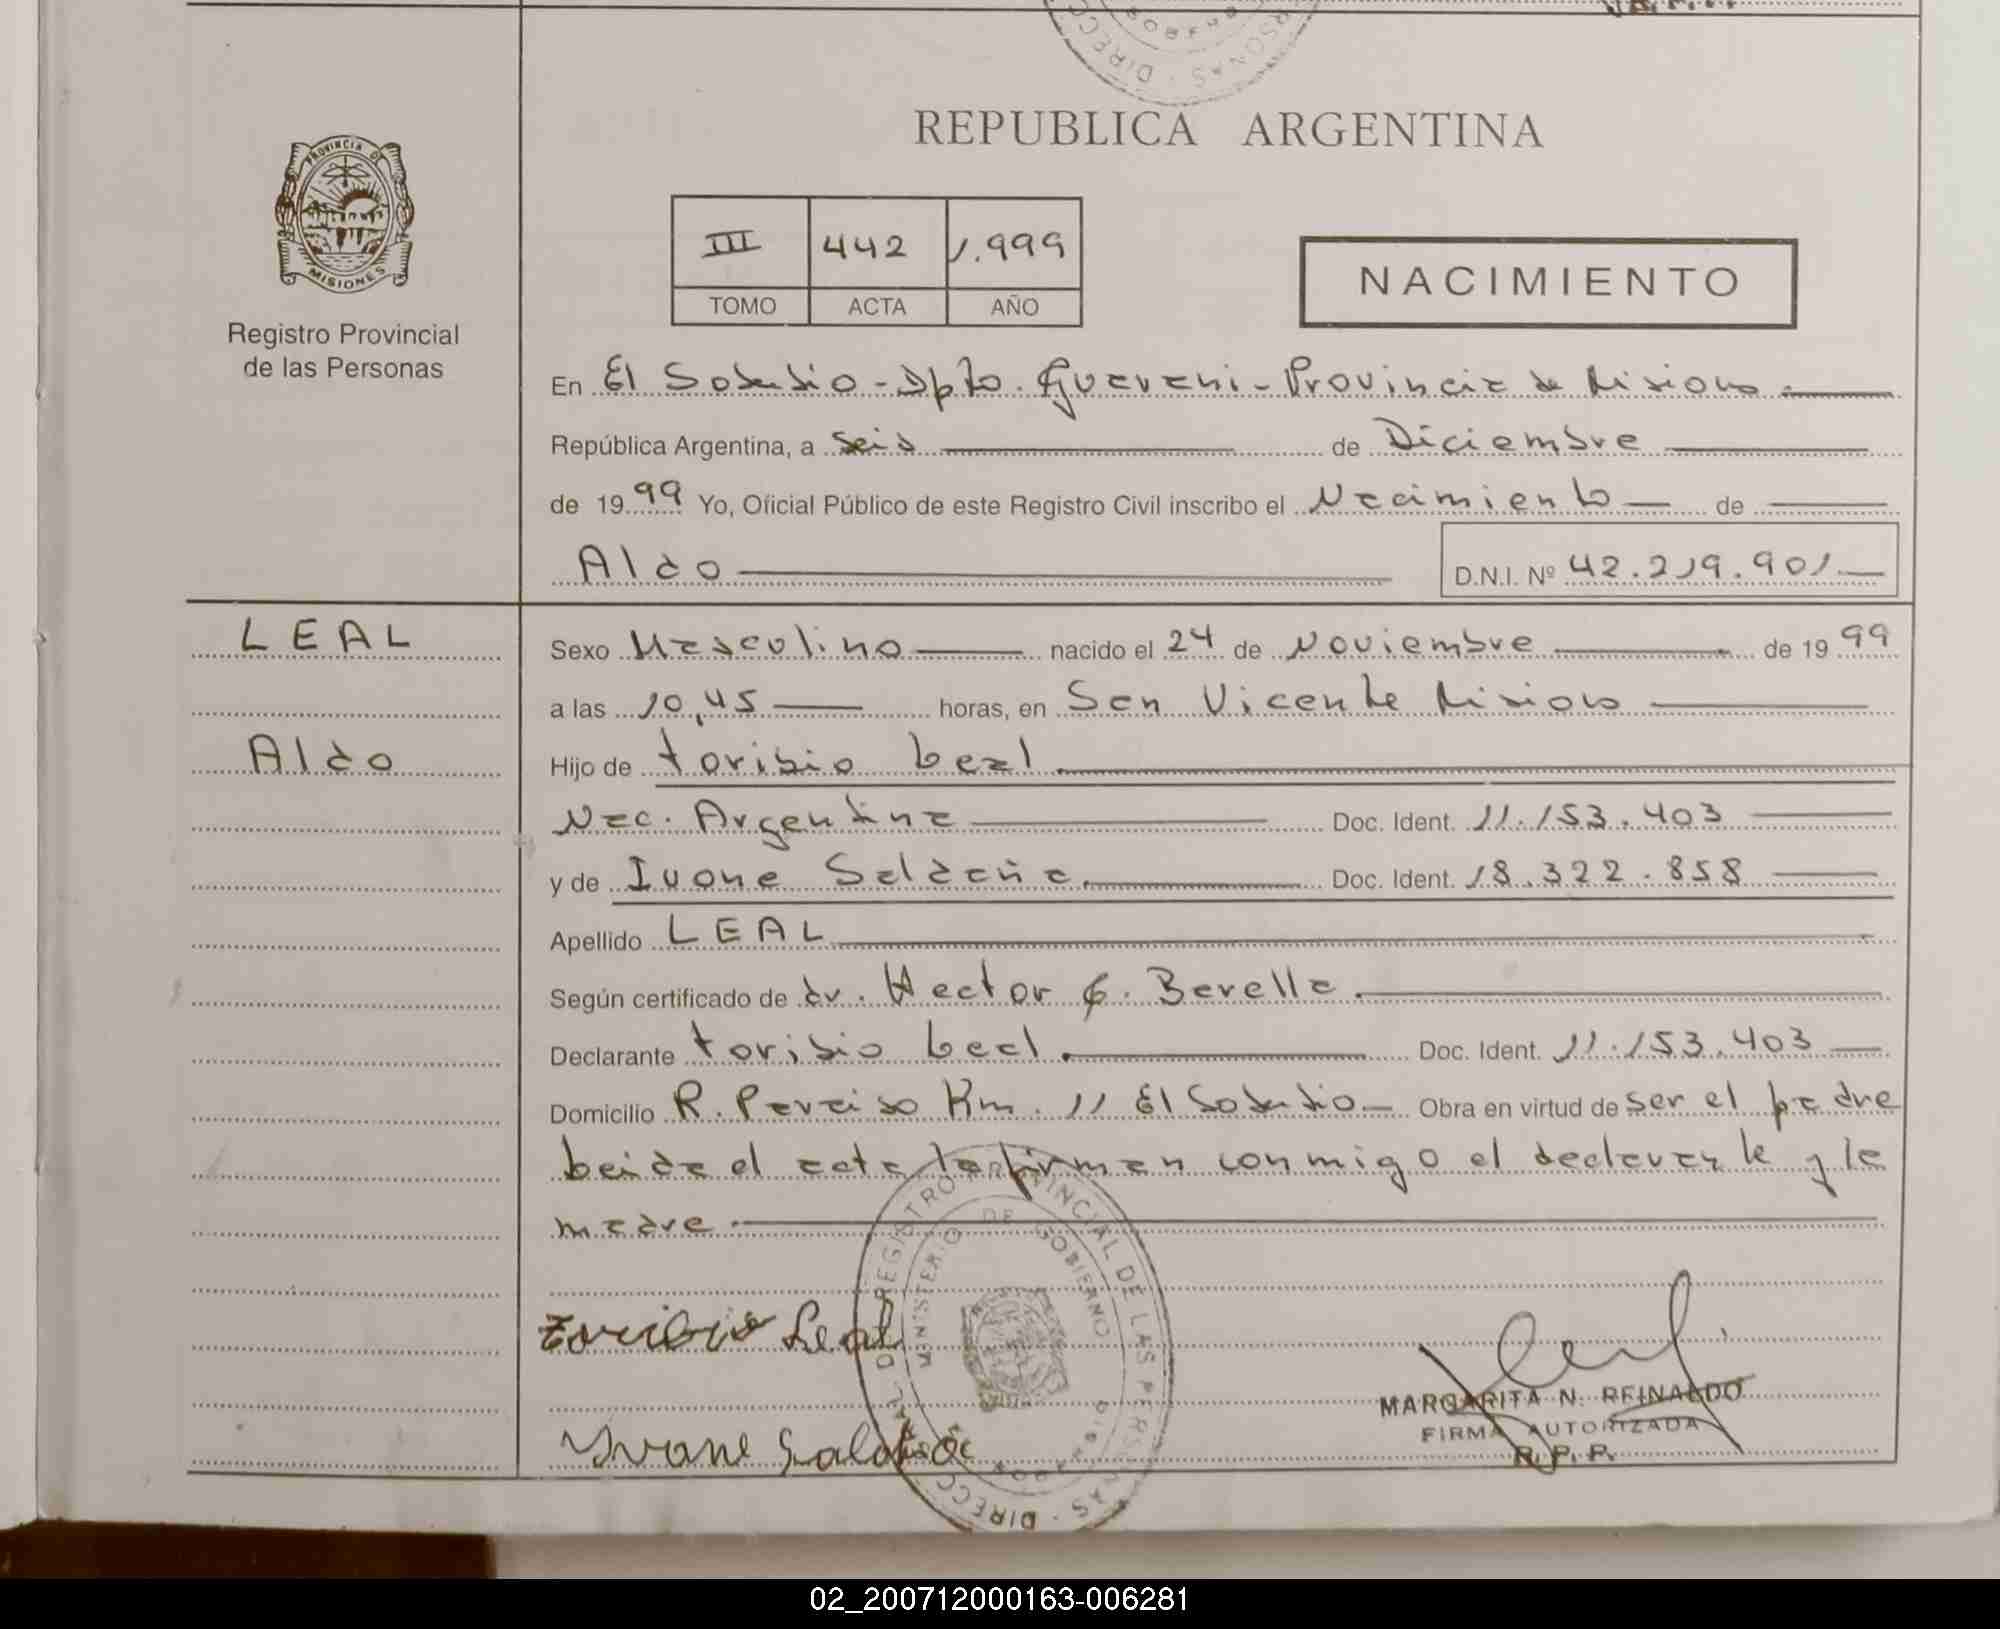 REPUBLICA ARGENTINA
PROVINCIA DE
MISIONES
Registro Provincial
de las Personas
III 442 1.999
TOMO ACTA AÑO
NACIMIENTO
En El Soberbio - Dpto. Guarani - Provincia de Misiones
República Argentina, a seis de Diciembre
de 1999 Yo, Oficial Público de este Registro Civil inscribo el Nacimiento de
Aldo D.N.I. Nº 42.219.901
LEAL
Aldo
Sexo Masculino nacido el 24 de Noviembre de 1999
a las 10,45 horas, en San Vicente Misiones
Hijo de Toribio Leal
Nac. Argentina Doc. Ident. 11.153.403
y de Ivone Saldaña Doc. Ident. 18.322.858
Apellido LEAL
Según certificado de dr. Hector G. Barella.
Declarante Toribio Leal Doc. Ident. 11.153.403
Domicilio R. Paraiso Km. 11 El Soberbio Obra en virtud de ser el padre
Leida el acta la firman conmigo el declarante y la
madre
Toribio Leal
Ivone Saldaña
REGISTRO PROVINCIAL DE LAS PERSONAS · DIRECC
MINISTERIO DE GOBIERNO
MARGARITA N. REINALDO
FIRMA AUTORIZADA
R. P. P.
02_200712000163-006281